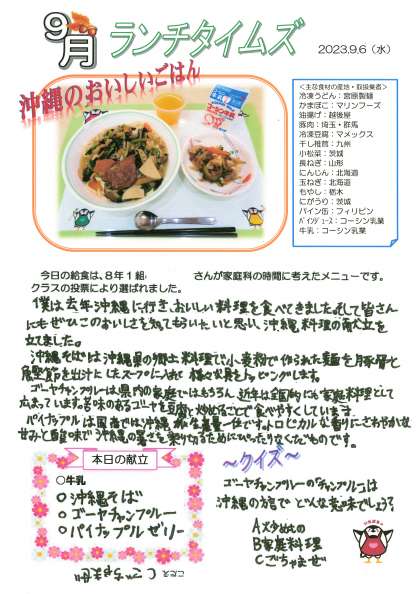 9月 ランチタイムズ
2023.9.6（水）
沖縄のおいしいごはん
＜主な食材の産地・取扱業者＞
冷凍うどん：宮原製麺
かまぼこ：マリンフーズ
油揚げ：越後屋
豚肉：埼玉・群馬
冷凍豆腐：マメックス
干し椎茸：九州
小松菜：茨城
長ねぎ：山形
にんじん：北海道
玉ねぎ：北海道
もやし：栃木
にがうり：茨城
パイン缶：フィリピン
パインジュース：コーシン乳業
牛乳：コーシン乳業
今日の給食は、8年1組 さんが家庭科の時間に考えたメニューです。
クラスの投票により選ばれました。
僕は去年沖縄に行き、おいしい料理を食べてきました。そして皆さん
にもぜひこのおいしさを知ってもらいたいと思い、沖縄料理の献立を
立てました。
沖縄そばは沖縄県の郷土料理で小麦粉で作られた麺を豚骨と
鰹節を出汁としたスープに入れて様々な具をトッピングします。
ゴーヤチャンプルーは県内の家庭ではもちろん、近年は全国的にも家庭料理として
広まっています。苦味のあるゴーヤを豆腐と炒めることで食べやすくしています。
パイナップルは国内では沖縄が生産量一位です。トロピカルな香りにさわやかな
甘みと酸味で沖縄の暑さを乗り切るためにぴったりなくだものです。
本日の献立
○牛乳
○沖縄そば
○ゴーヤチャンプルー
○パイナップルゼリー
～クイズ～
ゴーヤチャンプルーの「チャンプル」は
沖縄の方言でどんな意味でしょう？
A炒めもの
B家庭料理
Cごちゃまぜ
こたえ Cごちゃまぜ